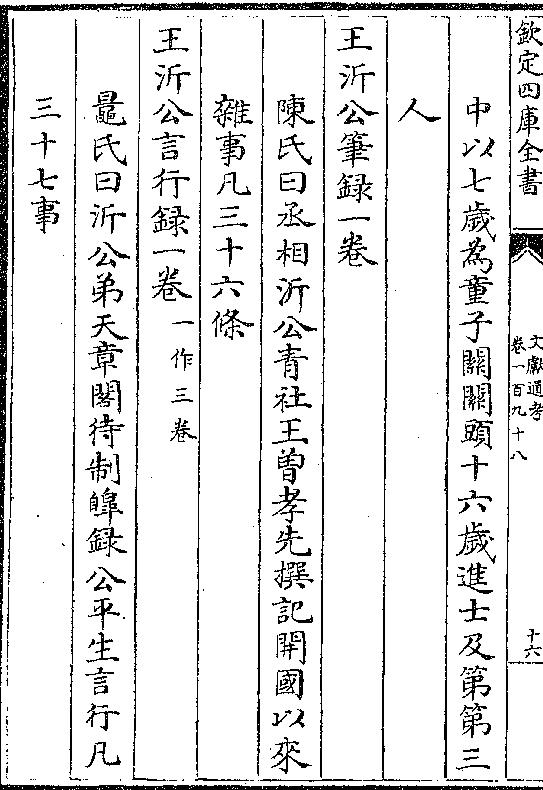 欽定四庫全書
文獻通考
卷一百九十八
十六
中以七歲為童子關關頭十六歲進士及第第三
人
王沂公筆録一卷
陳氏曰丞相沂公青社王曽孝先撰記開國以來
雜事凡三十六條
王沂公言行録一卷一作三卷
鼂氏曰沂公弟天章閣待制皥録公平生言行凡
三十七事